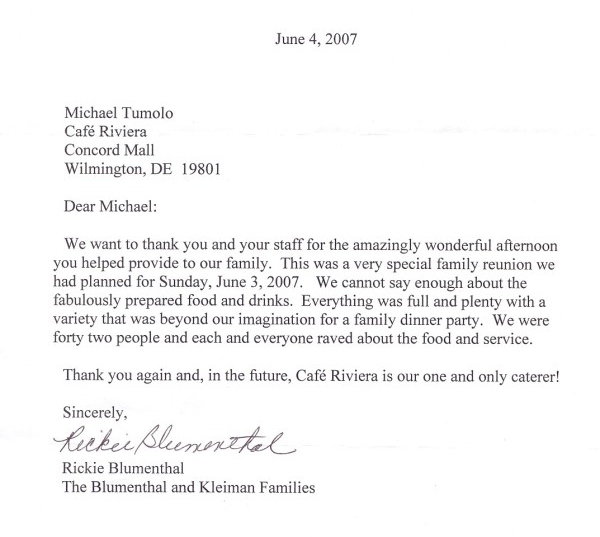 June 4, 2007
Michael Tumolo
Café Riviera
Concord Mall
Wilmington, DE 19801
Dear Michael:
We want to thank you and your staff for the amazingly wonderful afternoon
you helped provide to our family. This was a very special family reunion we
had planned for Sunday, June 3, 2007. We cannot say enough about the
fabulously prepared food and drinks. Everything was full and plenty with a
variety that was beyond our imagination for a family dinner party. We were
forty two people and each and everyone raved about the food and service.
Thank you again and, in the future, Café Riviera is our one and only caterer!
Sincerely,
Rickie Blumenthal
Rickie Blumenthal
The Blumenthal and Kleiman Families